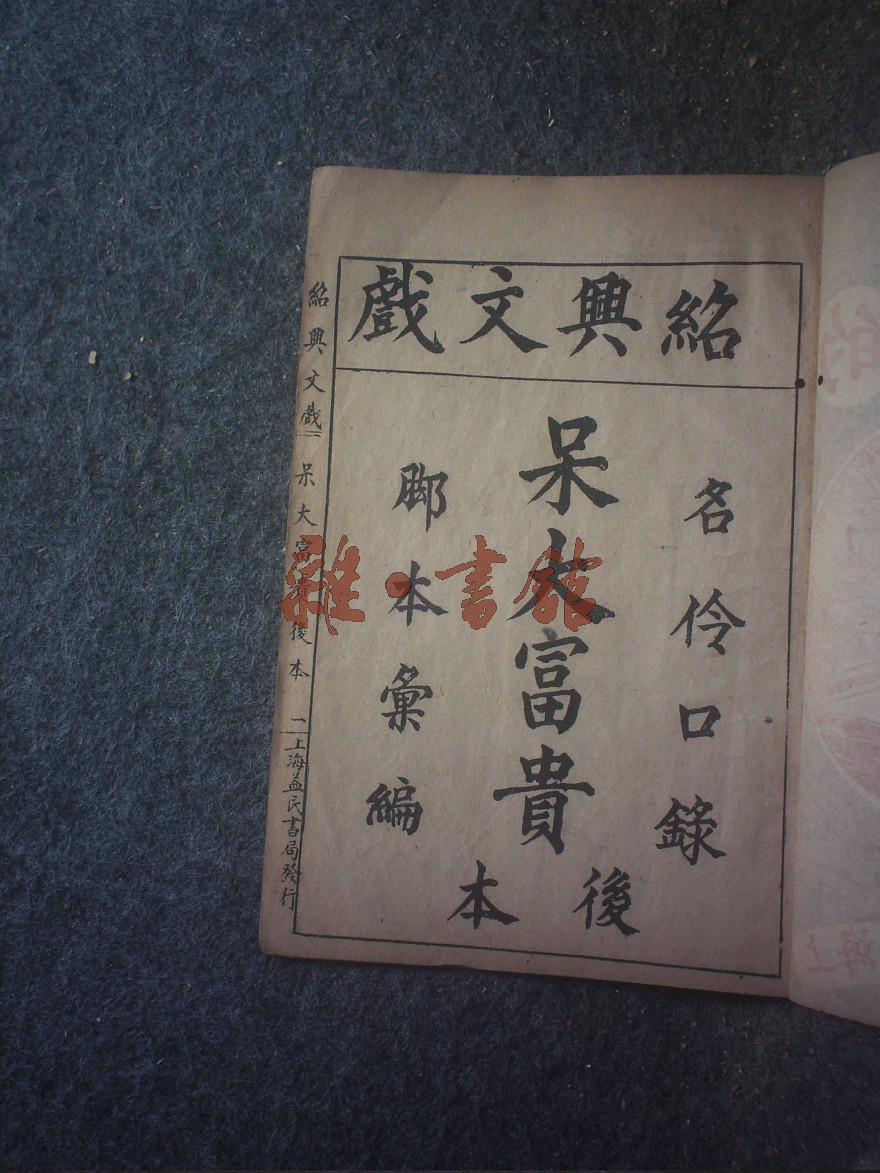 紹興文戲
名伶口錄
呆大富貴
後本
脚本彙編
紹興文戲 呆大富貴後本 二 上海益民書局發行
雜·書館
海上